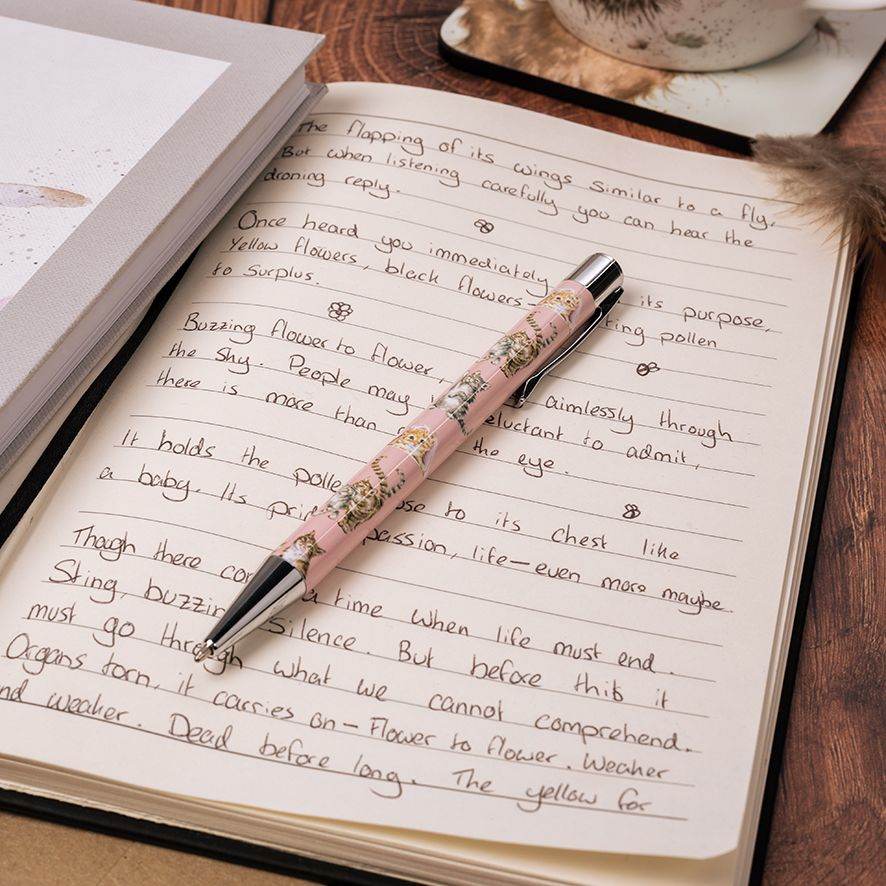 The flapping of its wings similar to a fly.
But when listening carefully you can hear the
droning reply.
Once heard you immediately its purpose,
Yellow flowers, black flowers - ring pollen
to surplus.
Buzzing flower to flower, aimlessly through
the sky. People may reluctant to admit,
there is more than the eye.
It holds the pollen to its chest like
a baby. Its passion, life - even more maybe.
Though there a time when life must end.
Sting, buzzing silence. But before this it
must go through what we cannot comprehend.
Organs torn, it carries on - Flower to flower. Weaker
nd weaker. Dead before long. The yellow for